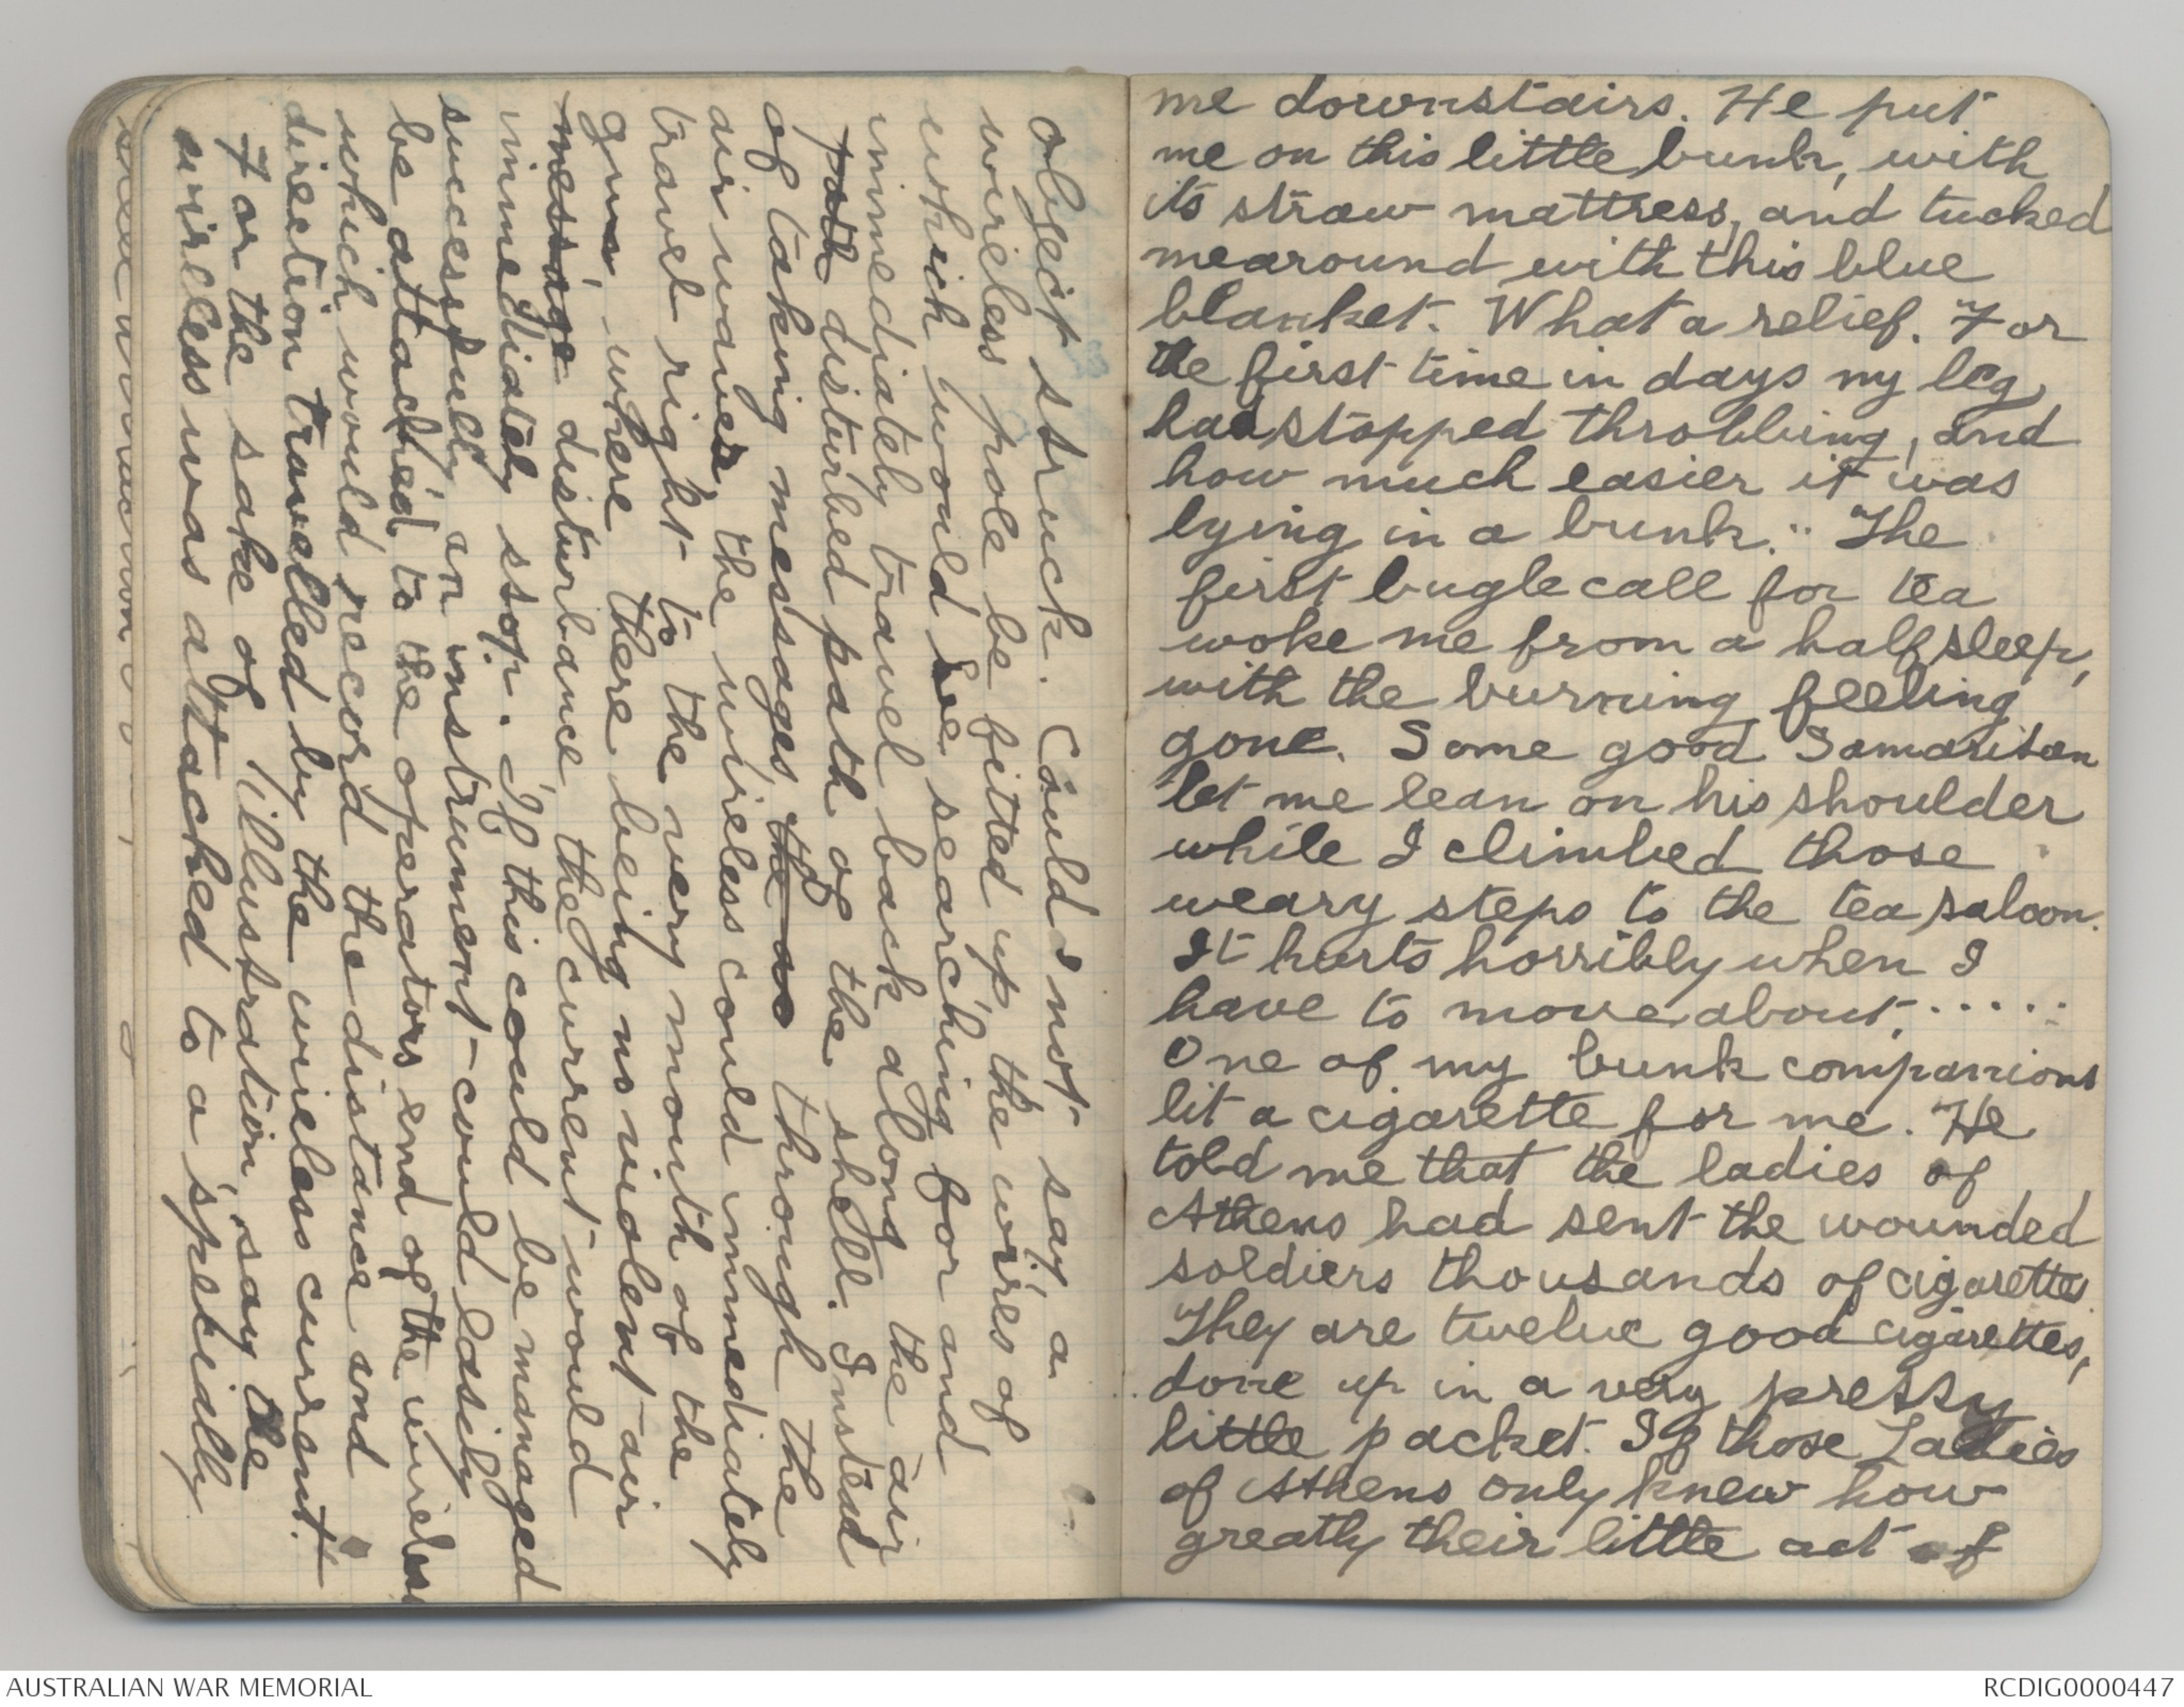 object struck. Could I not say, a
wireless pole be fitted up the wires of
which would be searching for and
immediately travel back along the air
path disturbed path of the shell. Instead
of taking messages, the as through the
air waves, the wireless could immediately
travel right to the very mouth of the
gun, where there being no violent air
message disturbance the current would
immediately stop. If this could be managed
successfully an instrument could easily
be attached to the operators end of the wireless
which would record the distance and
direction travelled by the wireless currant.
For the sake of illustration, say the
wireless was attached to a specially
me downstairs. He put
me on this little bunk, with
its straw mattress, and tucked
me around with this blue
blanket. What a relief. For
the first time in days my leg
had stopped throbbing, and
how much easier it was
lying in a bunk... The
first bugle call for tea
woke me from a half sleep,
with the burning feeling
gone. Some good Samaritan
let me lean on his shoulder
while I climbed those
weary steps to the tea saloon.
It hurts horribly when I
have to move about......
One of my bunk companions
lit a cigarette for me. He
told me that the ladies of
Athens had sent the wounded
soldiers thousands of cigarettes.
They are twelve good cigarettes,
done up in a very pretty
little packet. If those Ladies
of Athens only knew how
greatly their little act of
AUSTRALIAN WAR MEMORIAL
RCDIG0000447